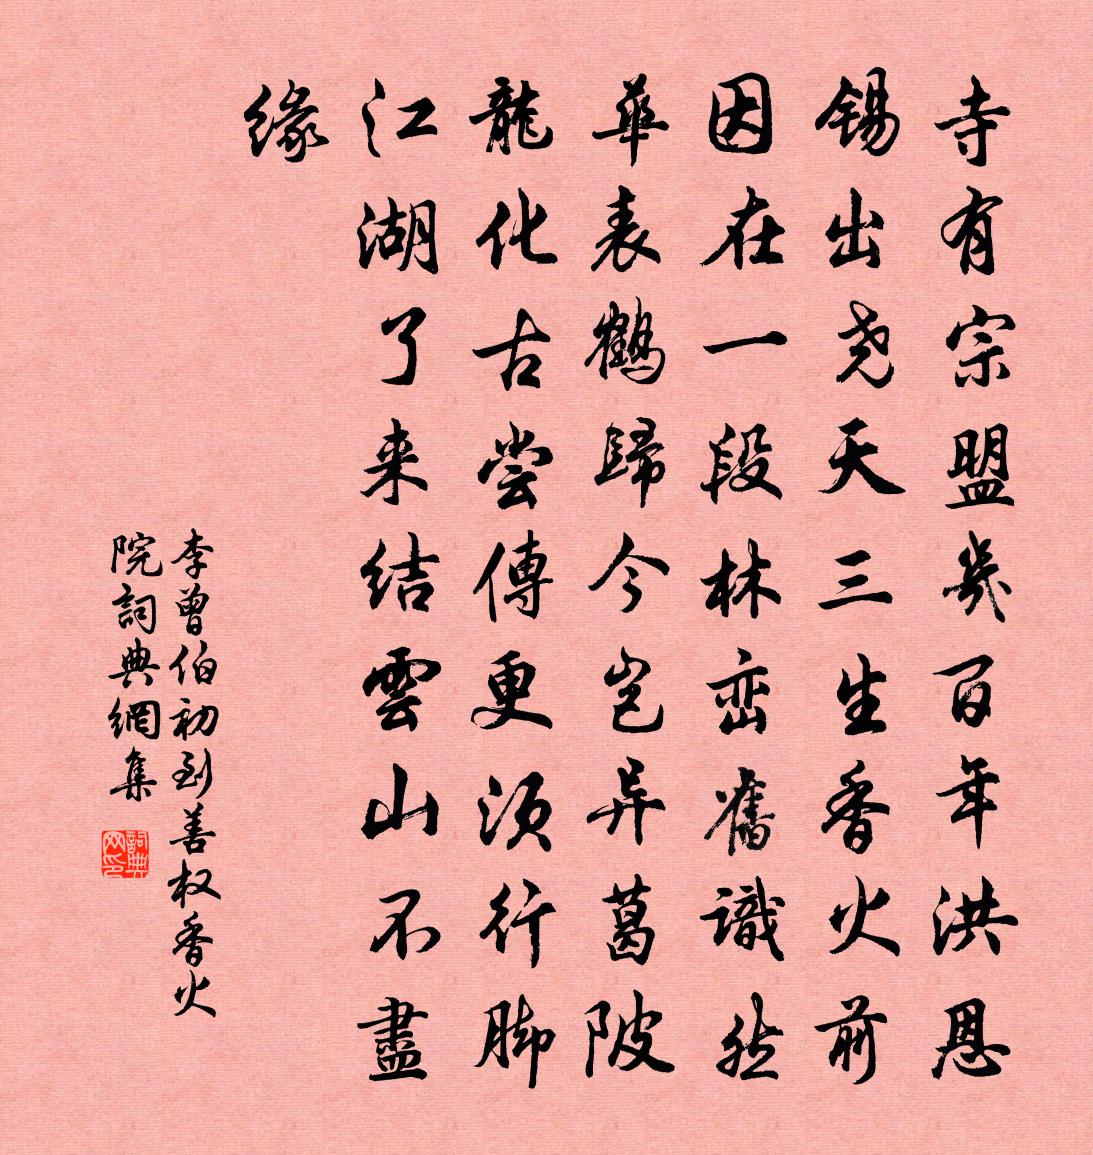 寺有宗盟幾百年洪恩
錫出尧天三生香火前
因在一段林峦舊識然
華表鶴歸今岂异葛陂
龍化古尝傳更须行脚
江湖了来结雲山不盡
缘
李曾伯初到善权香火
院詞典網集
詞典网印